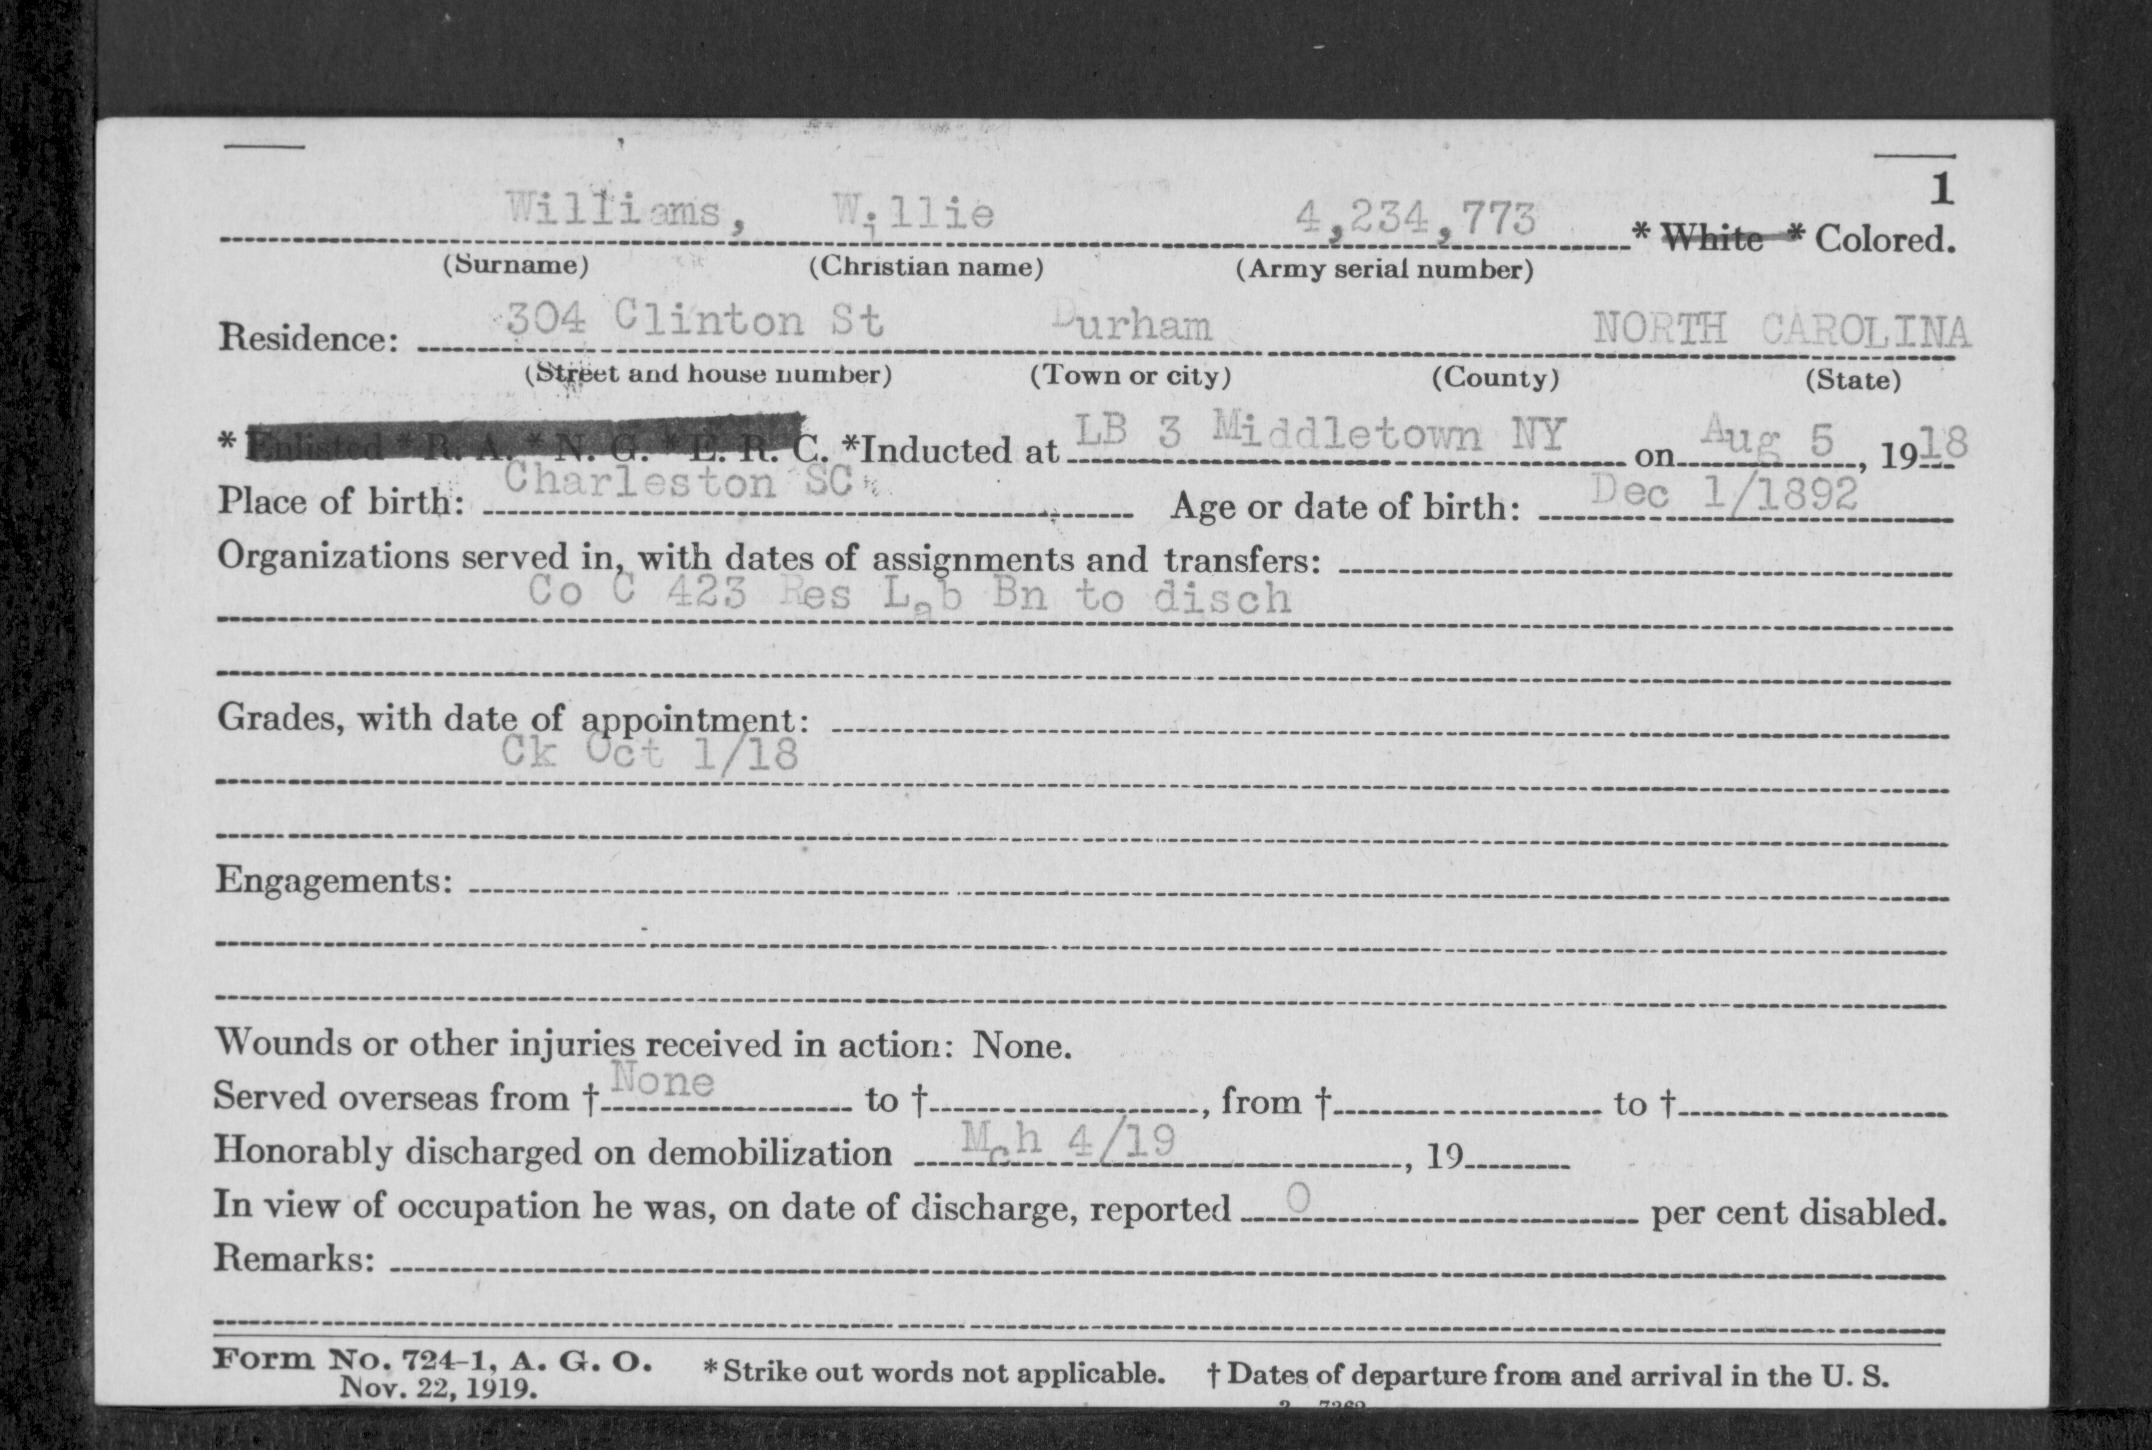 1
Williams, Willie 4,234,773 * White * Colored.
(Surname) (Christian name) (Army serial number)
Residence: 304 Clinton St Durham NORTH CAROLINA
(Street and house number) (Town or city) (County) (State)
* Enlisted * R. A. * N. G. * E. R. C. *Inducted at LB 3 Middletown NY on Aug 5, 1918
Place of birth: Charleston SC Age or date of birth: Dec 1/1892
Organizations served in, with dates of assignments and transfers:
Co C 423 Res Lab Bn to disch
Grades, with date of appointment:
Ck Oct 1/18
Engagements:
Wounds or other injuries received in action: None.
Served overseas from † None to †, from † to †
Honorably discharged on demobilization Mch 4/19, 19
In view of occupation he was, on date of discharge, reported 0 per cent disabled.
Remarks:
Form No. 724-1, A. G. O. * Strike out words not applicable. † Dates of departure from and arrival in the U. S.
Nov. 22, 1919.